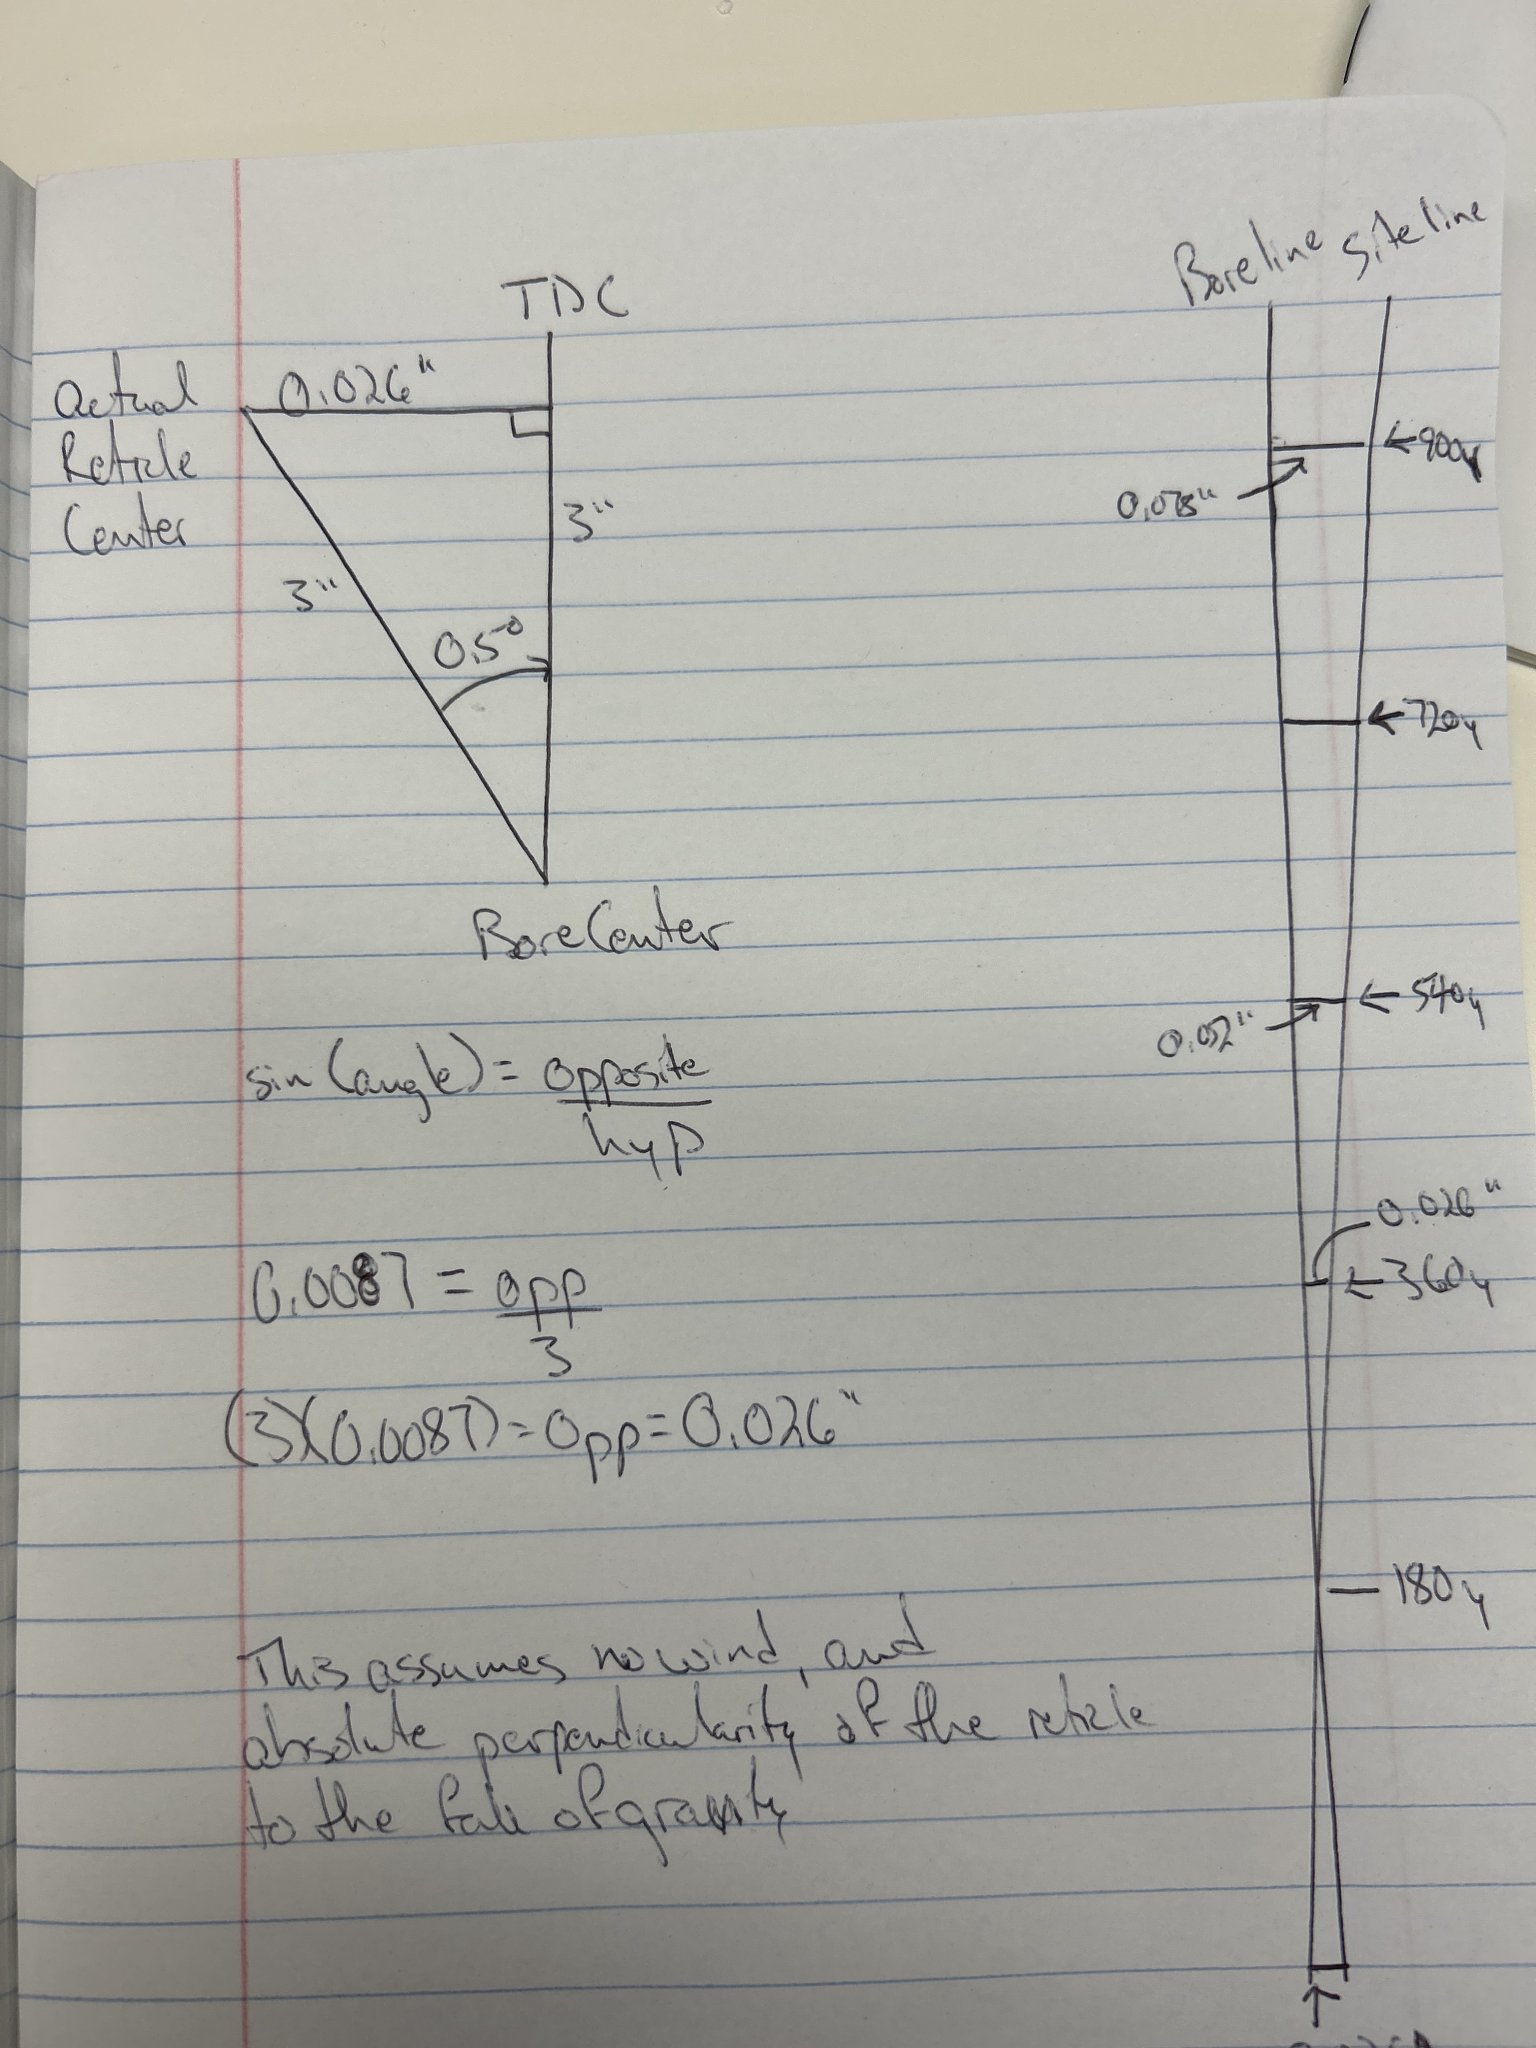 Boreline siteline
TDC
Actual
Reticle
Center
0.026"
3"
3"
0.5°
BoreCenter
sin(angle) = opposite
hyp
0.0087 = opp
3
(3)(0.0087) = opp = 0.026"
This assumes no wind, and
absolute perpendicularity of the reticle
to the fall of gravity
←900y
0.078"
←720y
←540y
0.052"
0.026"
←360y
180y